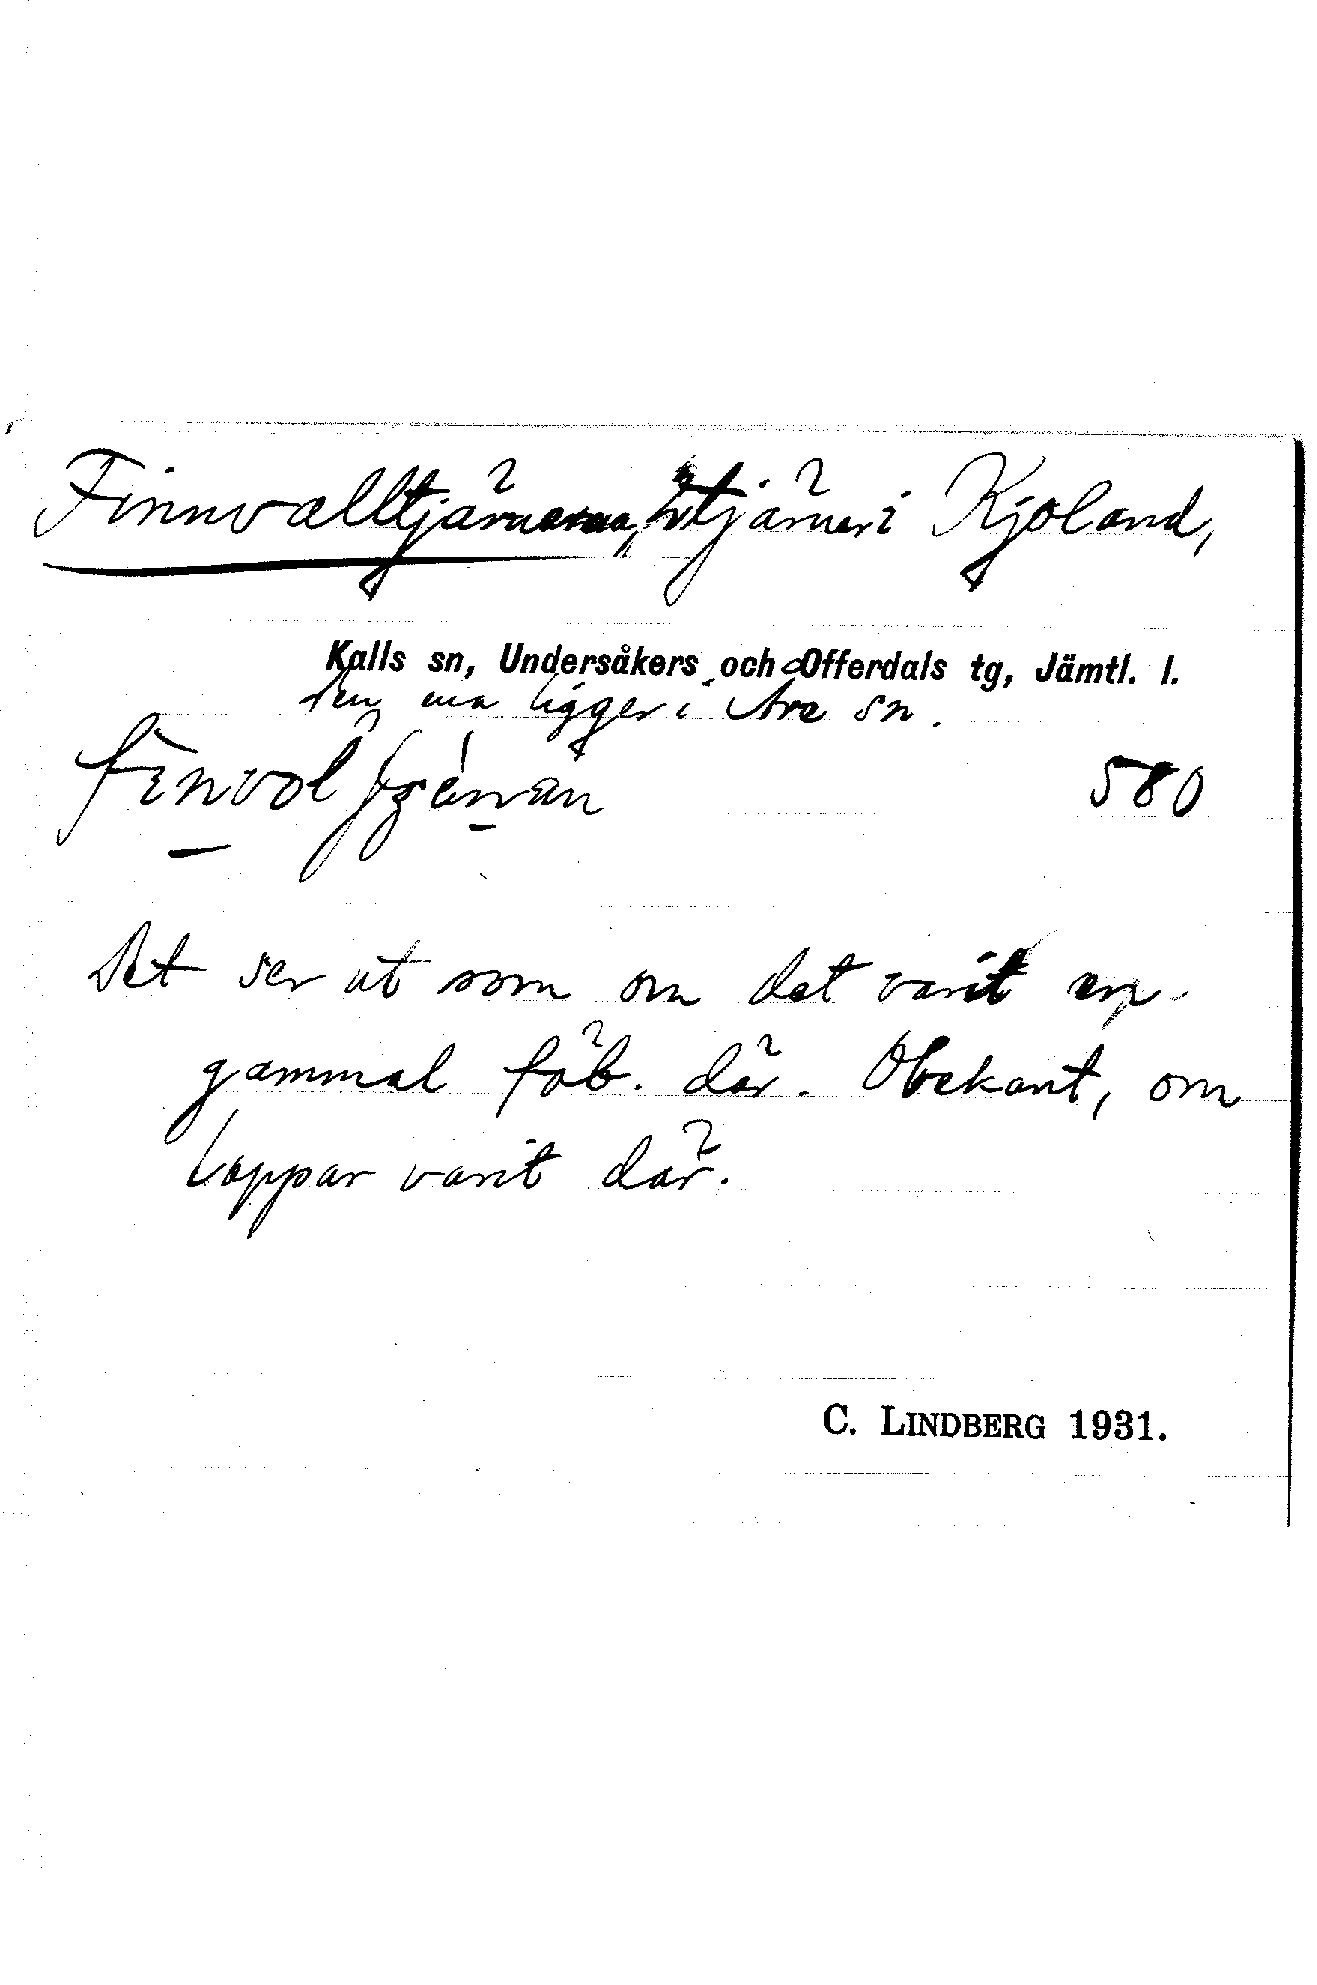 Finnvalltjärnarna, 2 tjärnar i Kjoland,
Kalls sn, Undersåkers och Offerdals tg, Jämtl. l.
den ena ligger i Åre sn.
580
Det ser ut som om det varit en
gammal fäb. där. Obekant, om
lappar varit där.
C. LINDBERG 1931.